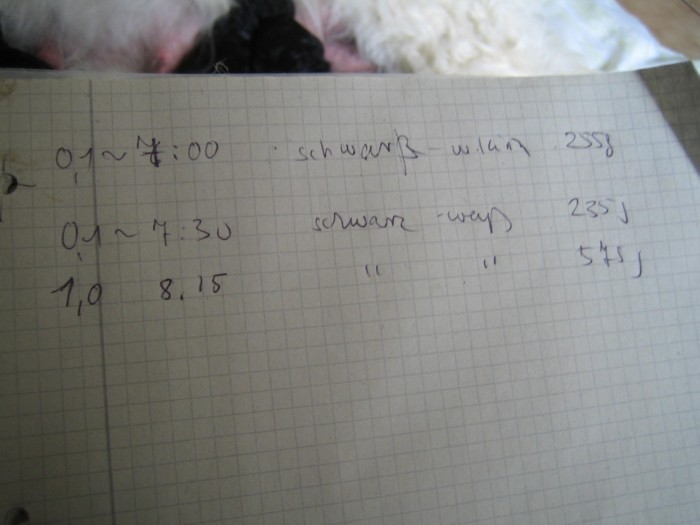 0,1 ~ 7:00 schwarß - 255g
0,1 ~ 7:30 schwarz - weiß 235g
1,0 8.15 " " 575g